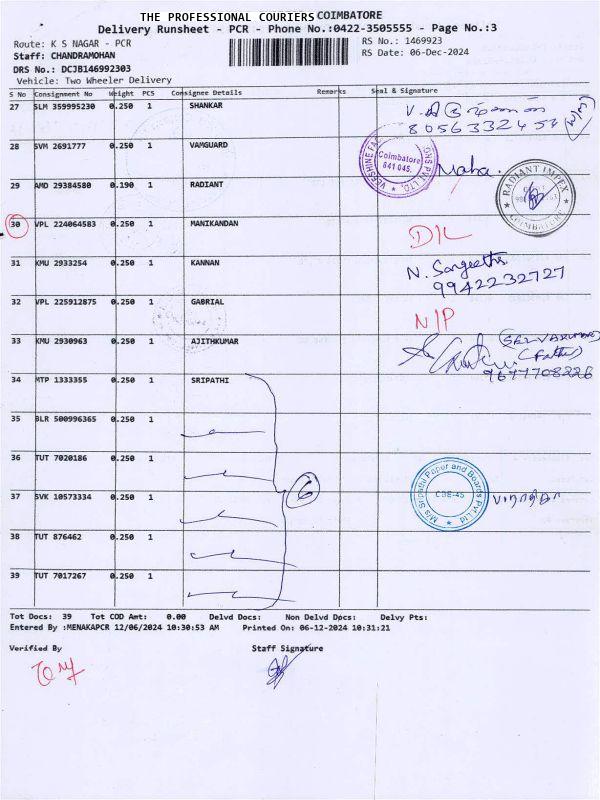 THE PROFESSIONAL COURIERS COIMBATORE
Delivery Runsheet - PCR - Phone No.:0422-3505555 - Page No.:3
Route: K S NAGAR - PCR
RS No.: 1469923
Staff: CHANDRAMOHAN
RS Date: 06-Dec-2024
DRS No.: DCJB146992303
Vehicle: Two Wheeler Delivery
S No Consignment No Weight PCS Consignee Details Remarks Seal & Signature
27 SLM 359995230 0.250 1 SHANKAR
28 SVM 2691777 0.250 1 VAMGUARD
Coimbatore 641 045.
Maha.
29 AMD 29384580 0.190 1 RADIANT
RADIANT IMPEX COIMBATORE
30 VPL 224064583 0.250 1 MANIKANDAN
D/L
31 KMU 2933254 0.250 1 KANNAN
N. Sangeetha
9942232727
32 VPL 225912875 0.250 1 GABRIAL
N/P
33 KMU 2930963 0.250 1 AJITHKUMAR
(SELVAKUMAR)
(Father)
9677708226
34 MTP 1333355 0.250 1 SRIPATHI
35 BLR 500996365 0.250 1
36 TUT 7020186 0.250 1
6
M/s Sripathi Paper and Boards Pvt Ltd
CBE-45
37 SVK 10573334 0.250 1
38 TUT 876462 0.250 1
39 TUT 7017267 0.250 1
Tot Docs: 39 Tot COD Amt: 0.00 Delvd Docs: Non Delvd Dpcs: Delvy Pts:
Entered By :MENAKAPCR 12/06/2024 10:30:53 AM Printed On: 06-12-2024 10:31:21
Verified By Staff Signature